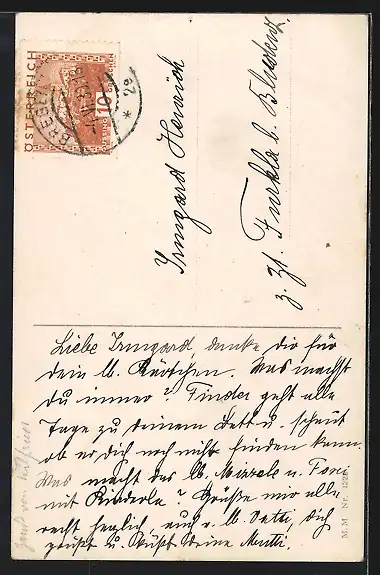 ÖSTERREICH
10
2a
Irmgard Henrich
z. Zt. Furkla b. Bludenz
Liebe Irmgard, danke dir für
dein lb. Kärtchen. Was machst
du immer? Finder geht alle
Tage zu deinem Bett u. schaut
ob er dich noch nicht finden kann.
Was macht das lb. u.
mit Kinderle? Grüße mir alle
recht herzlich, auch v. lb. Vatti, dich
grüßt u. küßt deine Mutti.
M.M. Nr. 1221